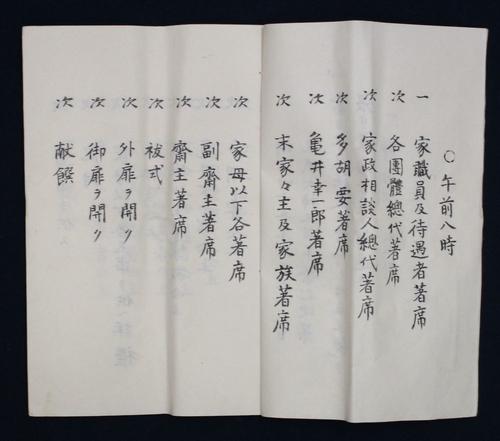 〇午前八時
一 家職員及待遇者著席
次 各團體總代著席
次 家政相談人總代著席
次 多胡要著席
次 亀井幸一郎著席
次 末家々主及家族著席
次 家母以下各著席
次 副齋主著席
次 齋主著席
次 祓式
次 外扉ヲ開ク
次 御扉ヲ開ク
次 献饌